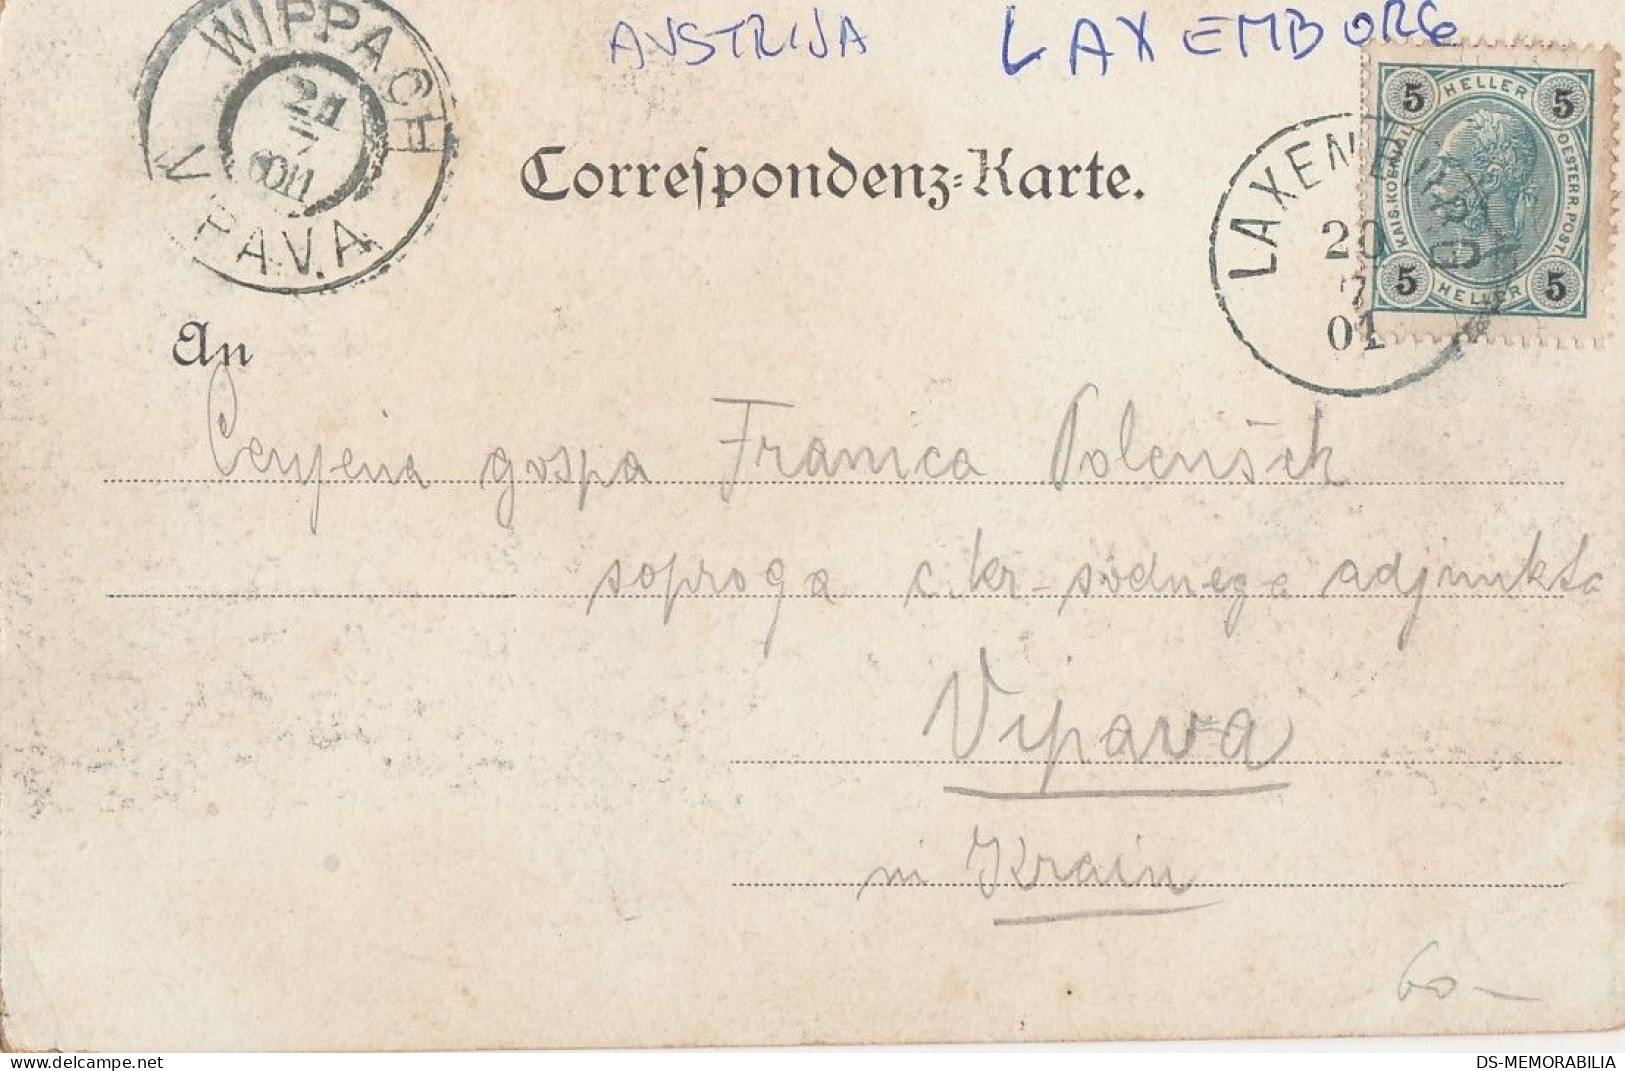 AVSTRIJA LAXEMBORG
WIPPACH
21
7
VIPAVA
Correspondenz-Karte.
LAXENBURG
20
7
01
5 HELLER 5
KAIS.KOENIGL. OESTERR.POST.
5 HELLER 5
An
Cenjena gospa Franica Polenšek
soproga c.kr. sodnega adjunkta
Vipava
Krain
60-
DS-MEMORABILIA